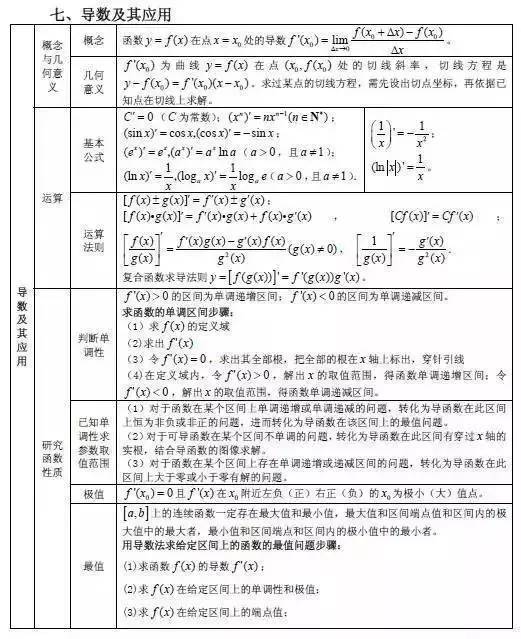 七、导数及其应用
导数及其应用
概念与几何意义
概念
函数 y=f(x) 在点 x=x₀ 处的导数 f'(x₀)=lim_{Δx→0} (f(x₀+Δx)−f(x₀))/Δx。
几何意义
f'(x₀) 为曲线 y=f(x) 在点 (x₀,f(x₀)) 处的切线斜率，切线方程是
y−f(x₀)=f'(x₀)(x−x₀)。求过某点的切线方程，需先设出切点坐标，再依据已
知点在切线上求解。
运算
基本公式
C'=0（C 为常数）；(xⁿ)'=nxⁿ⁻¹(n∈N*)；
(sin x)'=cos x,(cos x)'=−sin x；
(eˣ)'=eˣ,(aˣ)'=aˣ ln a（a>0，且 a≠1）；
(ln x)'=1/x,(logₐ x)'=1/x logₐ e（a>0，且 a≠1）.
(1/x)'=−1/x²；
(ln|x|)'=1/x。
运算法则
[f(x)±g(x)]'=f'(x)±g'(x)；
[f(x)•g(x)]'=f'(x)•g(x)+f(x)•g'(x)，[Cf(x)]'=Cf'(x)；
[f(x)/g(x)]'=(f'(x)g(x)−g'(x)f(x))/g²(x)(g(x)≠0)，[1/g(x)]'=−g'(x)/g²(x).
复合函数求导法则 y=[f(g(x))]'=f'(g(x))g'(x)。
研究函数性质
判断单调性
f'(x)>0 的区间为单调递增区间；f'(x)<0 的区间为单调递减区间。
求函数的单调区间步骤：
（1）求 f(x) 的定义域
(2)求出 f'(x)
（3）令 f'(x)=0，求出其全部根，把全部的根在 x 轴上标出，穿针引线
(4)在定义域内，令 f'(x)>0，解出 x 的取值范围，得函数单调递增区间；令
f'(x)<0，解出 x 的取值范围，得函数单调递减区间。
已知单调性求参数取值范围
（1）对于函数在某个区间上单调递增或单调递减的问题，转化为导函数在此区间
上恒为非负或非正的问题，进而转化为导函数在该区间上的最值问题。
（2）对于可导函数在某个区间不单调的问题，转化为导函数在此区间有穿过 x 轴的
实根，结合导函数的图像求解。
（3）对于函数在某个区间上存在单调递增或减区间的问题，转化为导函数在此
区间上大于零或小于零有解的问题。
极值
f'(x₀)=0 且 f'(x) 在 x₀ 附近左负（正）右正（负）的 x₀ 为极小（大）值点。
最值
[a,b] 上的连续函数一定存在最大值和最小值，最大值和区间端点值和区间内的极
大值中的最大者，最小值和区间端点和区间内的极小值中的最小者。
用导数法求给定区间上的函数的最值问题步骤：
(1)求函数 f(x) 的导数 f'(x)；
(2)求 f(x) 在给定区间上的单调性和极值；
(3)求 f(x) 在给定区间上的端点值；